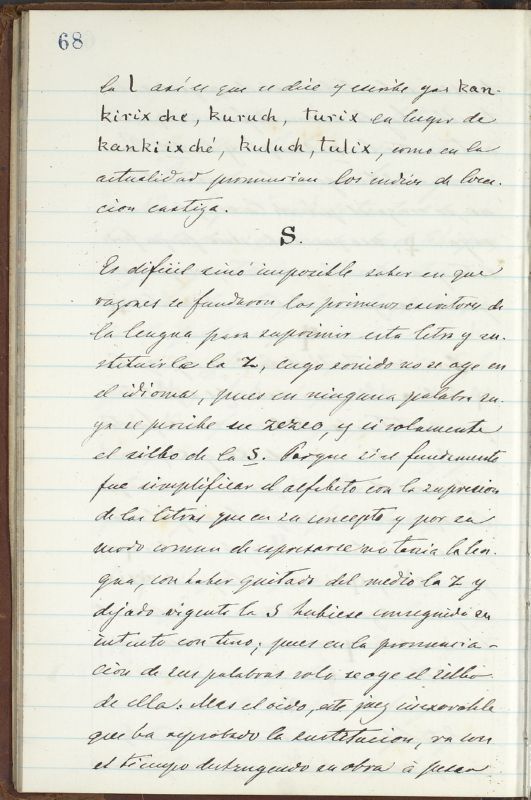 68
la l así es que se dice y escribe ya kan-
kirixche, kuruch, turix en lugar de
kankiixché, kuluch, tulix, como en la
actualidad pronuncian los indios de locu-
cion castiza.
S.
Es dificil sinó imposible saber en que
razones se fundaron los primeros escritores de
la lengua para suprimir esta letra y su-
stituirla la Z, cuyo sonido no se oye en
el idioma, pues en ninguna palabra su-
ya se percibe su zezeo, y si solamente
el silbo de la S. Porque si el fundamento
fue simplificar el alfabeto con la supresion
de las letras que en su concepto y por su
modo comun de espresarse no tenia la len-
gua, con haber quitado del medio la Z y
dejado vigente la S hubiese conseguido su
intento con tino; pues en la pronuncia-
ción de sus palabras solo se oye el silbo
de ella. Mas el oido, este juez inexorable
que ha reprobado la sustitucion, va con
el tiempo destruyendo su obra á pesar